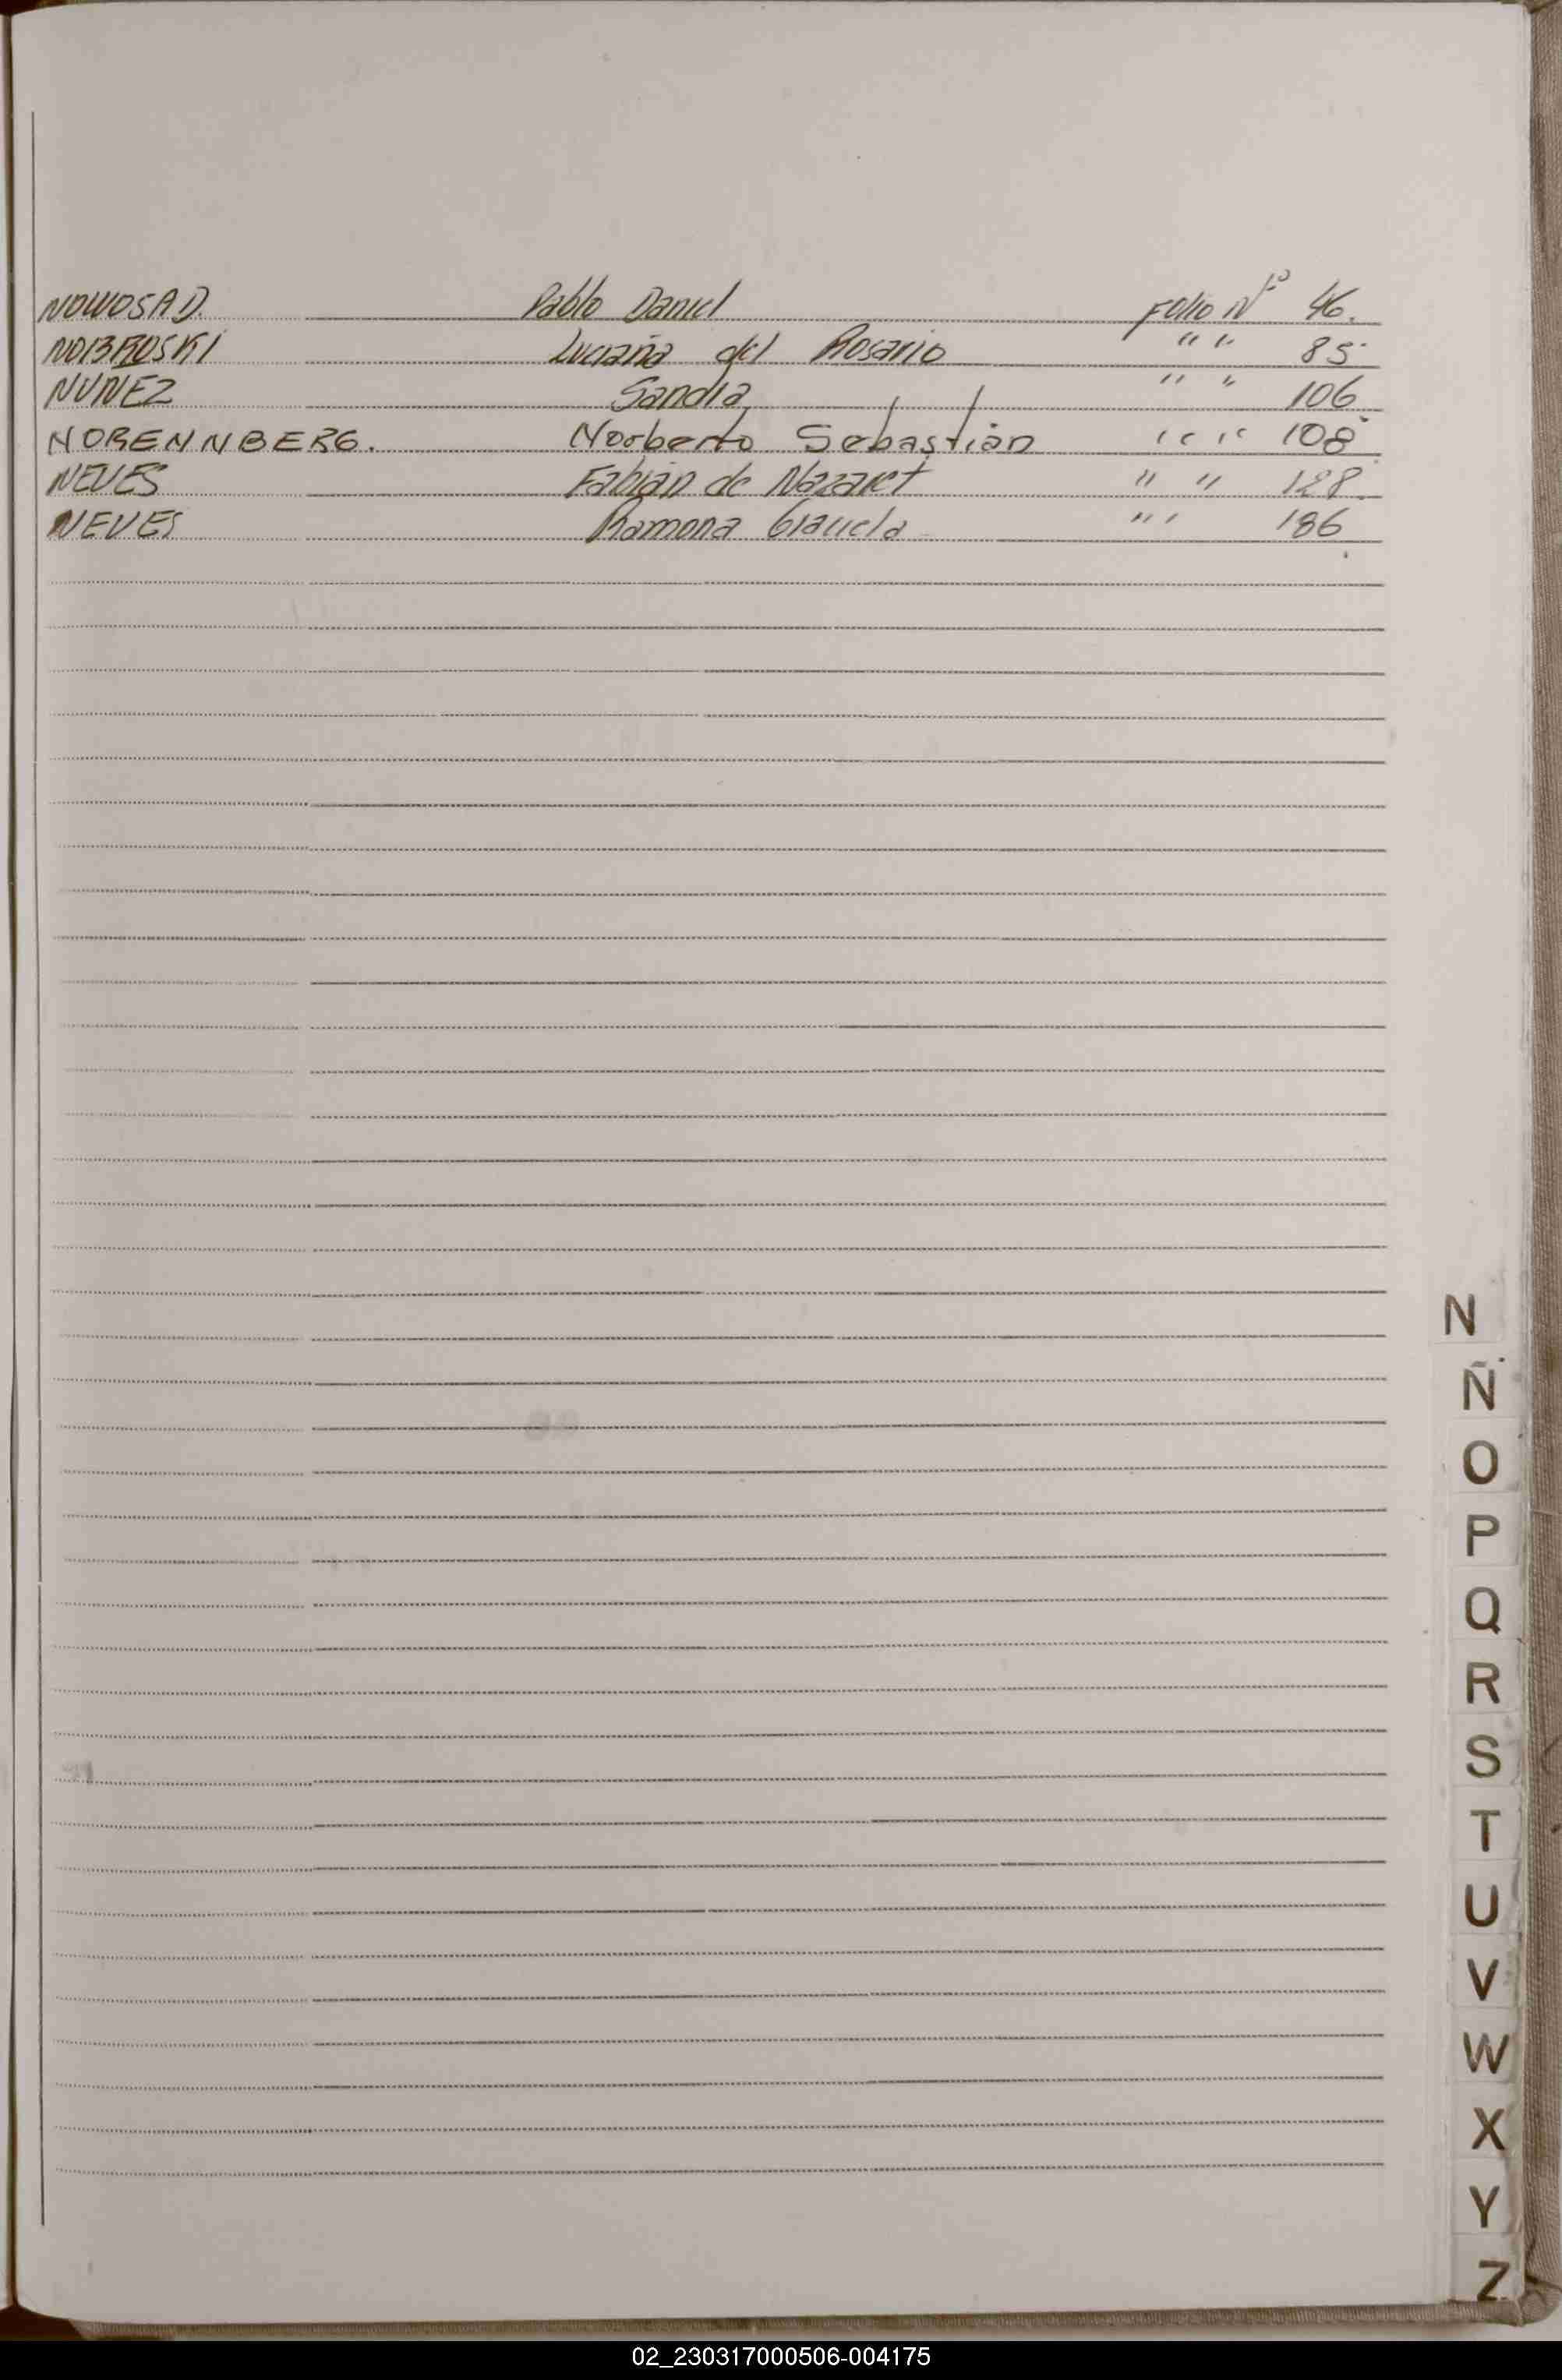 NOWOSAD. Pablo Daniel Folio Nº 46.
NOBROSKI Luciana del Rosario " " 85
NUNEZ Sandra " " 106
NORENNBERG. Norberto Sebastián " " 108
NEVES Fabián de Nazaret " " 128
NEVES Ramona Graciela " " 186
N
Ñ
O
P
Q
R
S
T
U
V
W
X
Y
Z
02_230317000506-004175